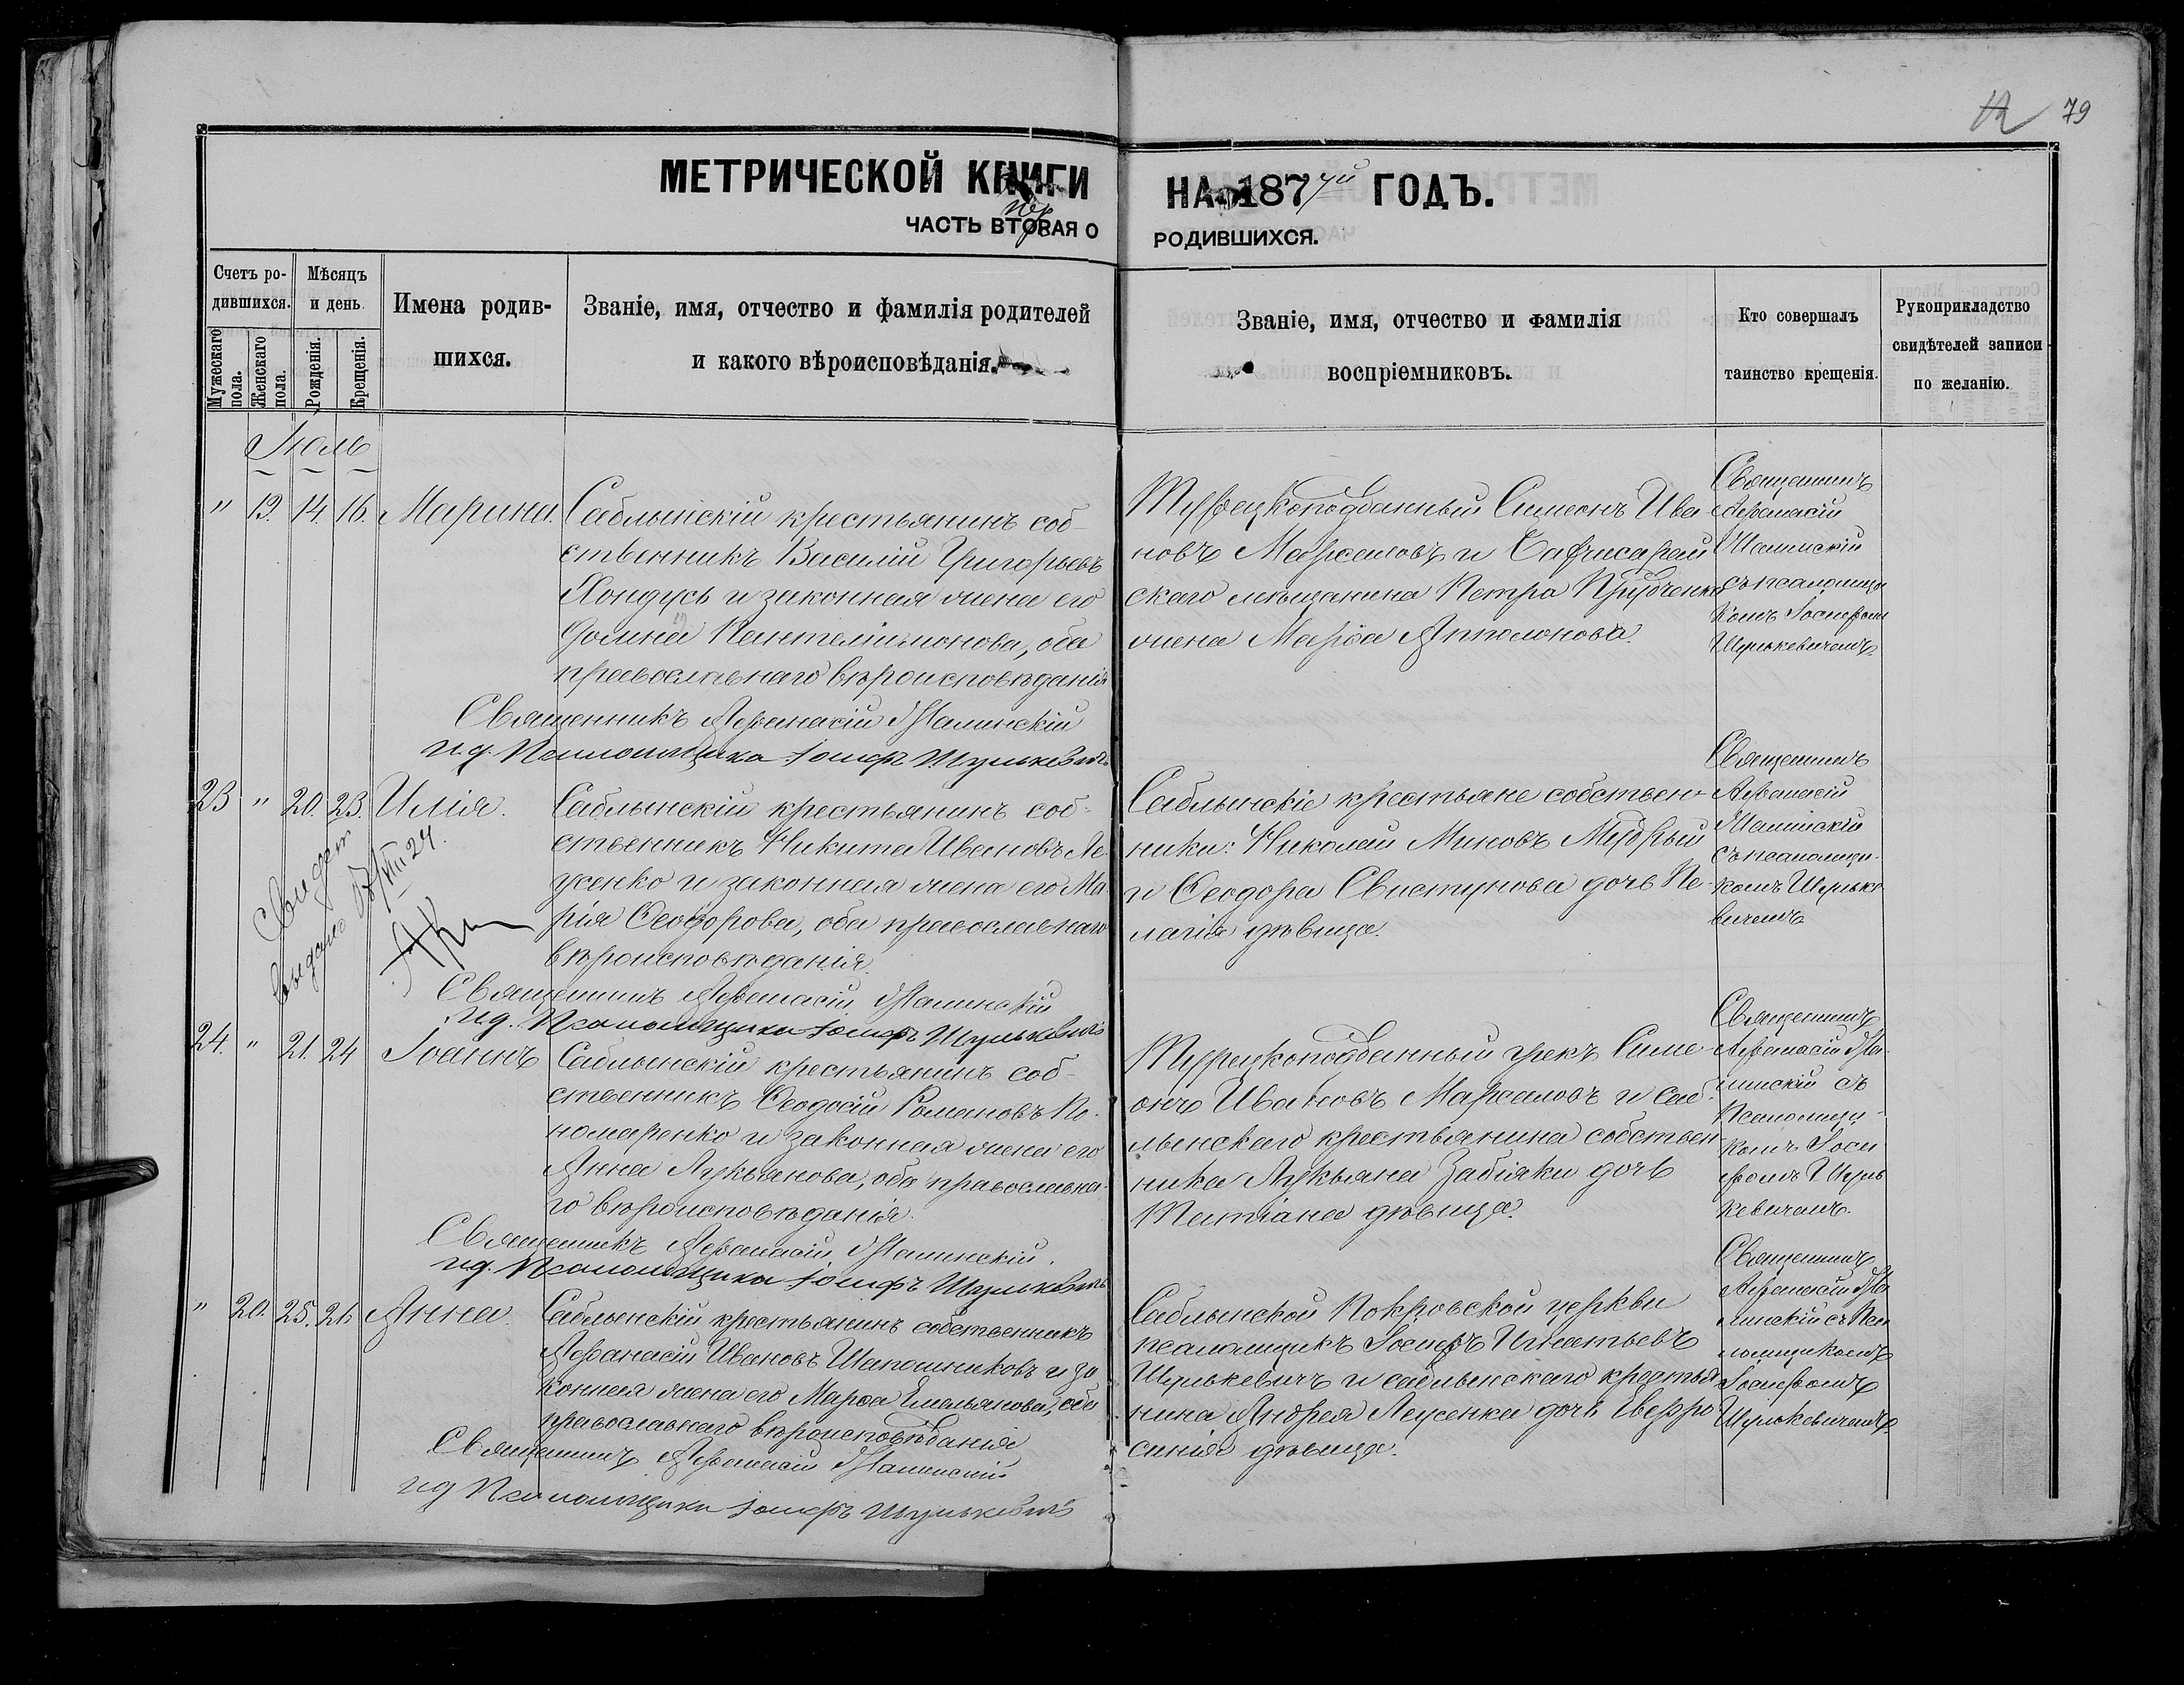 79
МЕТРИЧЕСКОЙ КНИГИ НА 187 ГОДЪ.
ЧАСТЬ ВТОРАЯ О РОДИВШИХСЯ.
Счетъ родившихся.
Мужескаго пола.
Женскаго пола.
Мѣсяцъ и день.
Рожденія.
Крещенія.
Имена родив-
шихся.
Званіе, имя, отчество и фамилія родителей
и какого вѣроисповѣданія.
Званіе, имя, отчество и фамилія
воспріемниковъ.
Кто совершалъ
таинство крещенія.
Рукоприкладство
свидѣтелей записи
по желанію.
Іюль
" 19. 14. 16. Марина.
Саблынскій крестьянинъ соб-
ственникъ Василій Григорьевъ
Хондусь и законная жена его
Пантелимонова, оба
православнаго вѣроисповѣданія
Священникъ Афанасій
и.д. Псаломщика Іосифъ Шулькевичъ
Турецкоподданный Симеонъ Ива
новъ Маржановъ и Бахчисарай
скаго мѣщанина Петра
жена Марѳа Апполонова.
Священникъ
Афанасій
съ псаломщи
комъ Іосифомъ
Шулькевичемъ.
23 " 20. 23. Илія.
Саблынскій крестьянинъ соб-
ственникъ Никита Ивановъ Ле-
усенко и законная жена его Ма-
рія Ѳеодорова, оба православнаго
вѣроисповѣданія.
Священникъ Афанасій
и.д. Псаломщика Іосифъ Шулькевичъ
Саблынскіе крестьяне собствен-
ники: Николай Миновъ Мудрый
и Ѳеодора Свистунова дочь Пе-
лагія дѣвица.
Священникъ
Афанасій
съ псаломщи-
комъ Шульке
вичемъ
выдано VIII 24.
24. " 21. 24 Іоаннъ
Саблынскій крестьянинъ соб-
ственникъ Ѳеодосій Романовъ По-
номаренко и законная жена его
Анна Лукьянова, оба православна-
го вѣроисповѣданія.
Священникъ Афанасій
и.д. Псаломщика Іосифъ Шулькевичъ
Турецкоподданный грекъ Симе-
онъ Ивановъ Маржановъ и саб-
лынскаго крестьянина собствен
ника Лукьяна Забіяки дочь
Татіана дѣвица.
Священникъ
Афанасій
съ
Псаломщи-
комъ Іоси
фомъ Шуль
кевичемъ.
" 20. 25. 26 Анна.
Саблынскій крестьянинъ собственникъ
Афанасій Ивановъ Шапошниковъ и за
конная жена его Марѳа Емельянова, оба
православнаго вѣроисповѣданія
Священникъ Афанасій
и.д. Псаломщика Іосифъ Шулькевичъ
Саблынской Покровской церкви
псаломщикъ Іосифъ Игнатьевъ
Шулькевичъ и саблынскаго крестья
нина Андрея Леусенка дочь Евфро
синія дѣвица.
Священникъ
Афанасій
съ Пса
ломщикомъ
Іосифомъ
Шулькевичемъ.